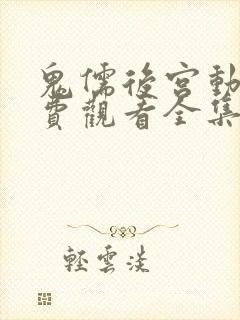 鬼儒後宮動
費觀看全集
輕雲淡